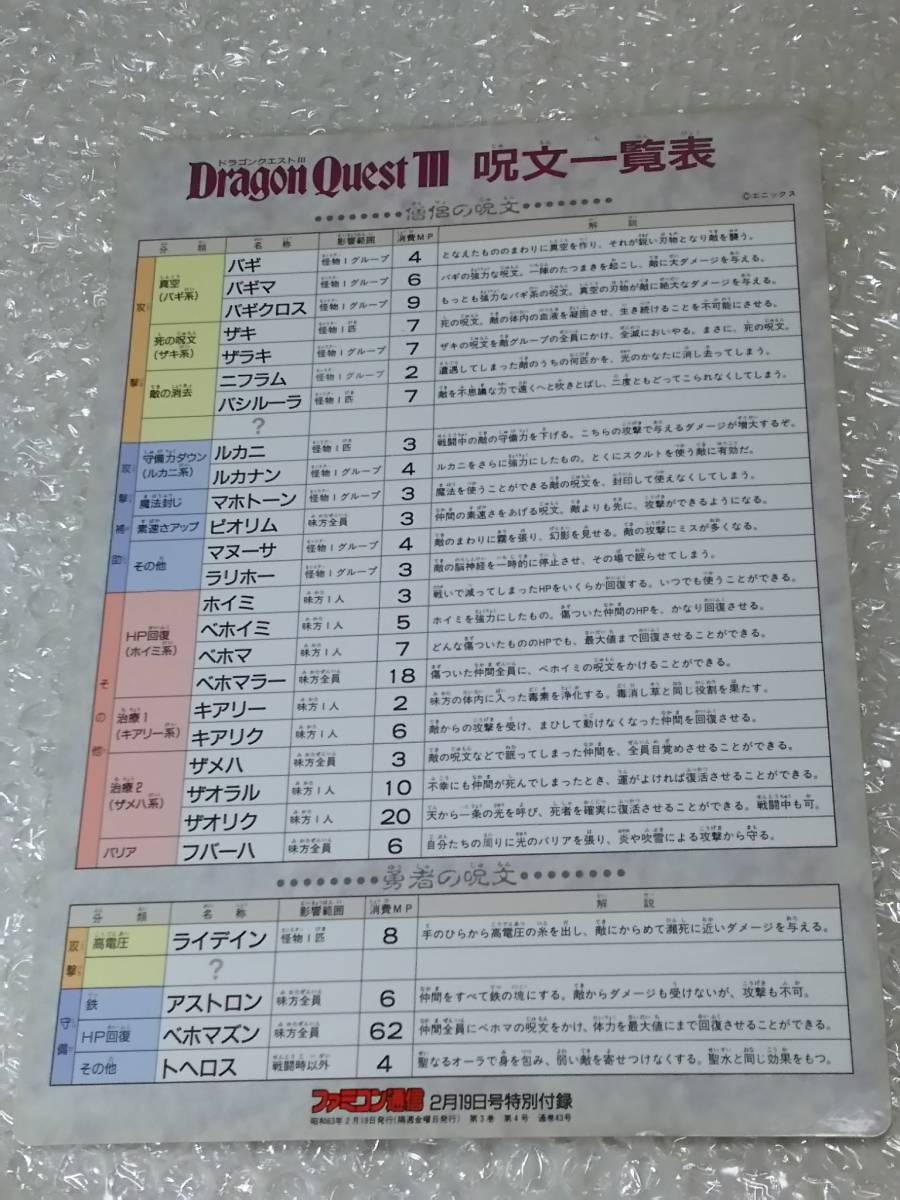 ドラゴンクエストIII
Dragon Quest III 呪文一覧表
©エニックス
僧侶の呪文
分類 名称 影響範囲 消費MP 解説
攻撃
真空(バギ系) バギ 怪物1グループ 4 となえたもののまわりに真空を作り、それが鋭い刃物となり敵を襲う。
バギマ 怪物1グループ 6 バギの強力な呪文。一陣のたつまきを起こし、敵に大ダメージを与える。
バギクロス 怪物1グループ 9 もっとも強力なバギ系の呪文。真空の刃物が敵に絶大なダメージを与える。
死の呪文(ザキ系) ザキ 怪物1匹 7 死の呪文。敵の体内の血液を凝固させ、生き続けることを不可能にさせる。
ザラキ 怪物1グループ 7 ザキの呪文を敵グループの全員にかけ、全滅においやる。まさに、死の呪文。
敵の消去 ニフラム 怪物1グループ 2 遭遇してしまった敵のうちの何匹かを、光のかなたに消し去ってしまう。
バシルーラ 怪物1匹 7 敵を不思議な力で遠くへと吹きとばし、二度ともどってこられなくしてしまう。
?
攻撃補助
守備力ダウン(ルカニ系) ルカニ 怪物1匹 3 戦闘中の敵の守備力を下げる。こちらの攻撃で与えるダメージが増大するぞ。
ルカナン 怪物1グループ 4 ルカニをさらに強力にしたもの。とくにスクルトを使う敵に有効だ。
魔法封じ マホトーン 怪物1グループ 3 魔法を使うことができる敵の呪文を、封印して使えなくしてしまう。
素速さアップ ピオリム 味方全員 3 仲間の素速さをあげる呪文。敵よりも先に、攻撃ができるようになる。
その他 マヌーサ 怪物1グループ 4 敵のまわりに霧を張り、幻影を見せる。敵の攻撃にミスが多くなる。
ラリホー 怪物1グループ 3 敵の脳神経を一時的に停止させ、その場で眠らせてしまう。
その他
HP回復(ホイミ系) ホイミ 味方1人 3 戦いで減ってしまったHPをいくらか回復する。いつでも使うことができる。
ベホイミ 味方1人 5 ホイミを強力にしたもの。傷ついた仲間のHPを、かなり回復させる。
ベホマ 味方1人 7 どんな傷ついたもののHPでも、最大値まで回復させることができる。
ベホマラー 味方全員 18 傷ついた仲間全員に、ベホイミの呪文をかけることができる。
治療1(キアリー系) キアリー 味方1人 2 味方の体内に入った毒素を浄化する。毒消し草と同じ役割を果たす。
キアリク 味方1人 6 敵からの攻撃を受け、まひして動けなくなった仲間を回復させる。
治療2(ザメハ系) ザメハ 味方全員 3 敵の呪文などで眠ってしまった仲間を、全員目覚めさせることができる。
ザオラル 味方1人 10 不幸にも仲間が死んでしまったとき、運がよければ復活させることができる。
ザオリク 味方1人 20 天から一条の光を呼び、死者を確実に復活させることができる。戦闘中も可。
バリア フバーハ 味方全員 6 自分たちの周りに光のバリアを張り、炎や吹雪による攻撃から守る。
勇者の呪文
分類 名称 影響範囲 消費MP 解説
攻撃
高電圧 ライデイン 怪物1匹 8 手のひらから高電圧の糸を出し、敵にからめて瀕死に近いダメージを与える。
?
守備
鉄 アストロン 味方全員 6 仲間をすべて鉄の塊にする。敵からダメージも受けないが、攻撃も不可。
HP回復 ベホマズン 味方全員 62 仲間全員にベホマの呪文をかけ、体力を最大値にまで回復させることができる。
その他 トヘロス 戦闘時以外 4 聖なるオーラで身を包み、弱い敵を寄せつけなくする。聖水と同じ効果をもつ。
ファミコン通信 2月19日号特別付録
昭和63年2月19日発行(隔週金曜日発行) 第3巻 第4号 通巻43号